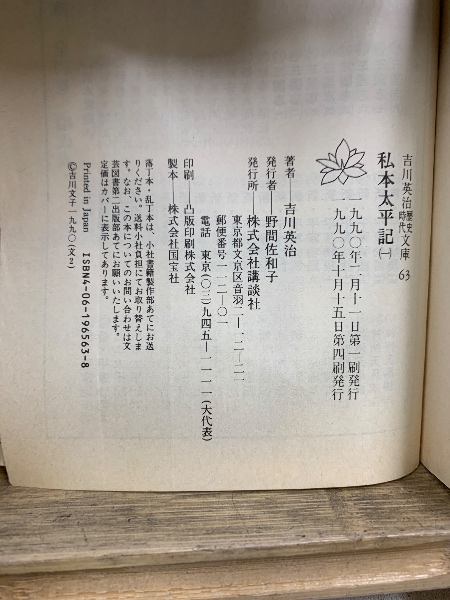 吉川英治歴史時代文庫 63
私本太平記㈠
一九九〇年二月十一日第一刷発行
一九九〇年十月十五日第四刷発行
著者——吉川英治
発行者——野間佐和子
発行所——株式会社講談社
東京都文京区音羽二—一二—二一
郵便番号一一二—〇一
電話 東京(〇三)九四五—一一一一(大代表)
印刷——凸版印刷株式会社
製本——株式会社国宝社
落丁本・乱丁本は、小社書籍製作部あてにお送
りください。送料小社負担にてお取り替えしま
す。なお、この本についてのお問い合わせは文
芸図書第二出版部あてにお願いいたします。
定価はカバーに表示してあります。
Printed in Japan ISBN4-06-196563-8
©吉川文子一九九〇(文2)